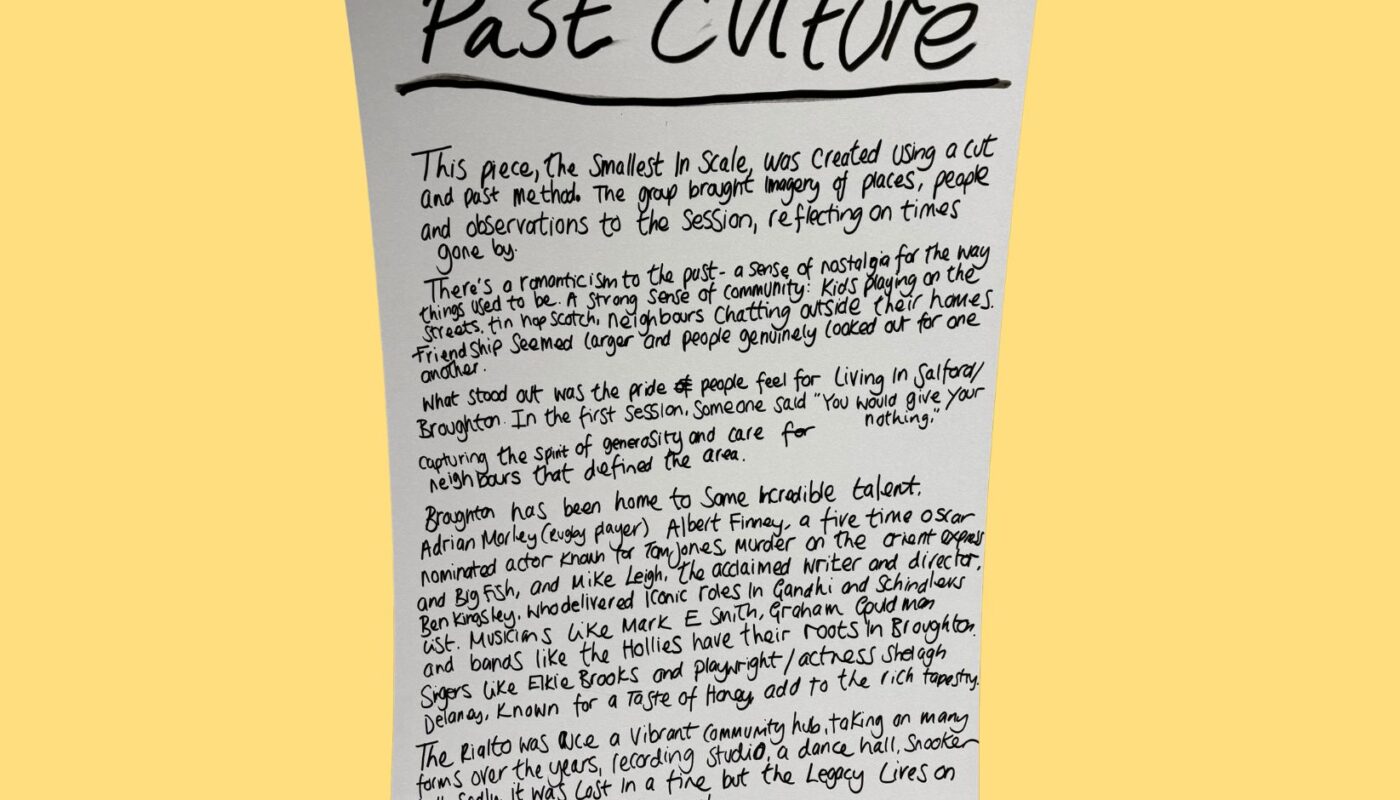 Past Culture
This piece, the Smallest In Scale, was created using a cut
and past method. The group brought Imagery of places, people
and observations to the session, reflecting on times
gone by.
There's a romanticism to the past - a sense of nostalgia for the way
things used to be. A strong sense of community: Kids playing on the
streets, tin hop scotch, neighbours chatting outside their homes.
Friendship seemed larger and people genuinely looked out for one
another.
What stood out was the pride people feel for Living In Salford/
Broughton. In the first session, someone said "You would give your
nothing."
capturing the spirit of generosity and care for
neighbours that defined the area.
Broughton has been home to some incredible talent.
Adrian Morley (rugby player) Albert Finney, a five time oscar
nominated actor known for Tom Jones, Murder on the orient express
and Big Fish, and Mike Leigh, the acclaimed writer and director,
Ben Kingsley, who delivered iconic roles In Gandhi and Schindlers
List. Musicians like Mark E Smith, Graham Gouldman
and bands like the Hollies have their roots in Broughton.
Sigers like Elkie Brooks and playwright/actress Shelagh
Delaney, known for a Taste of Honey, add to the rich tapestry.
The Rialto was once a vibrant community hub, taking on many
forms over the years, recording studio, a dance hall, snooker
Sadly it was lost in a fire, but the Legacy Lives on